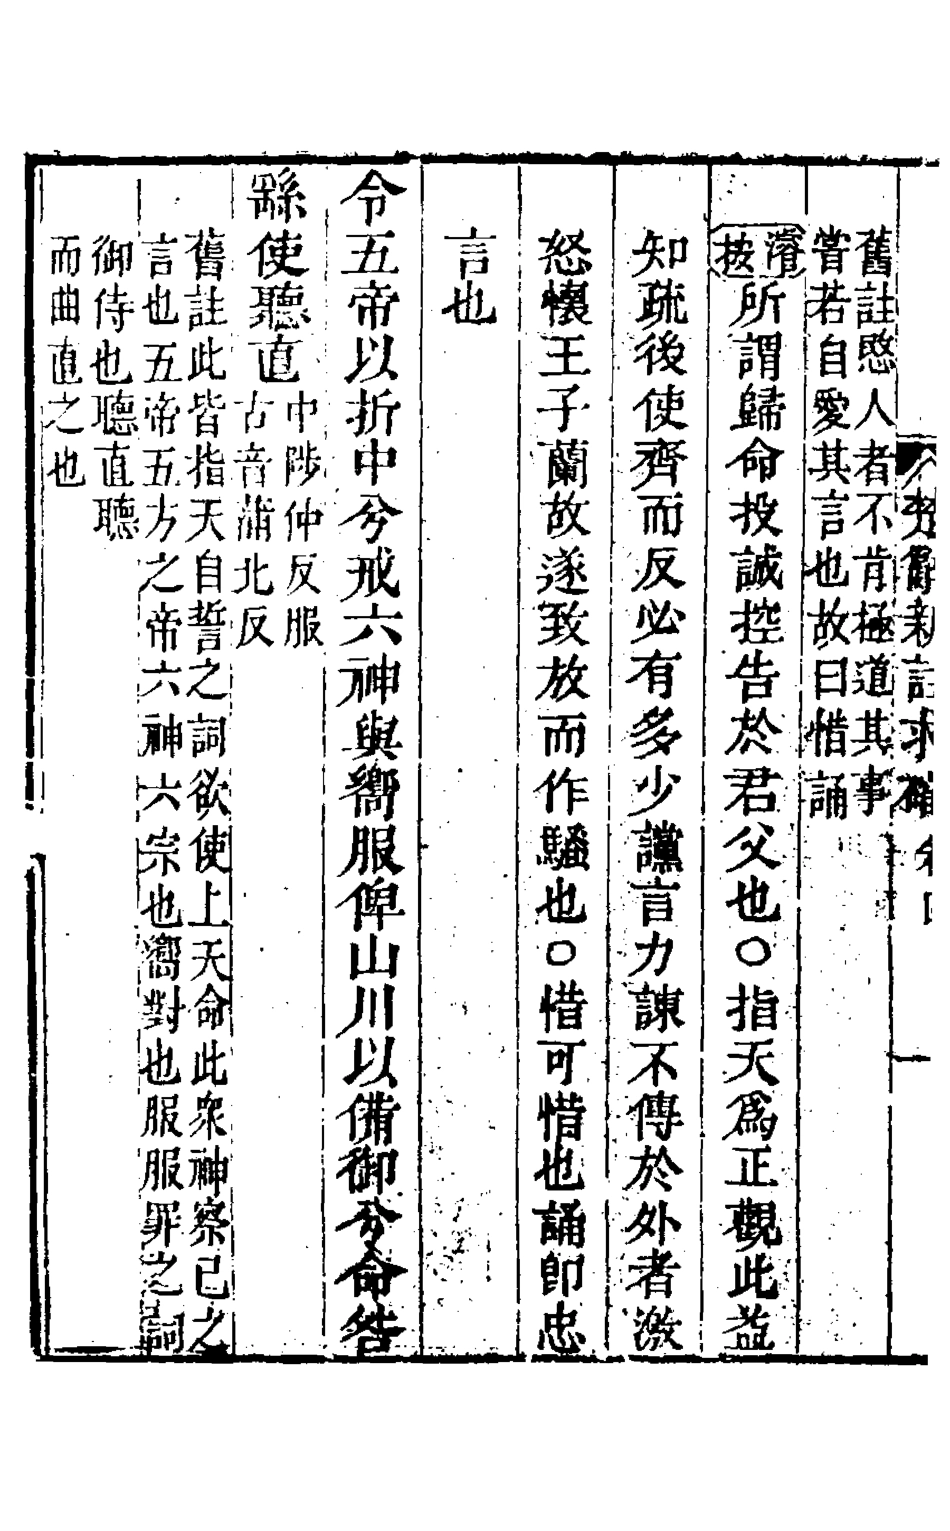 舊註愍人者不肯極道其事
嘗若自愛其言也故曰惜誦
濬按所謂歸命投誠控告於君父也○指天為正觀此益
知疏後使齊而反必有多少讜言力諫不傳於外者激
怒懷王子蘭故遂致放而作騷也○惜可惜也誦即忠
言也
令五帝以折中兮戒六神與嚮服俾山川以備御兮命咎
繇使聽直
中陟仲反服
古音蒲北反
舊註此皆指天自誓之詞欲使上天命此衆神察己之
言也五帝五方之帝六神六宗也嚮對也服服罪之詞
御侍也聽直聽
而曲直之也